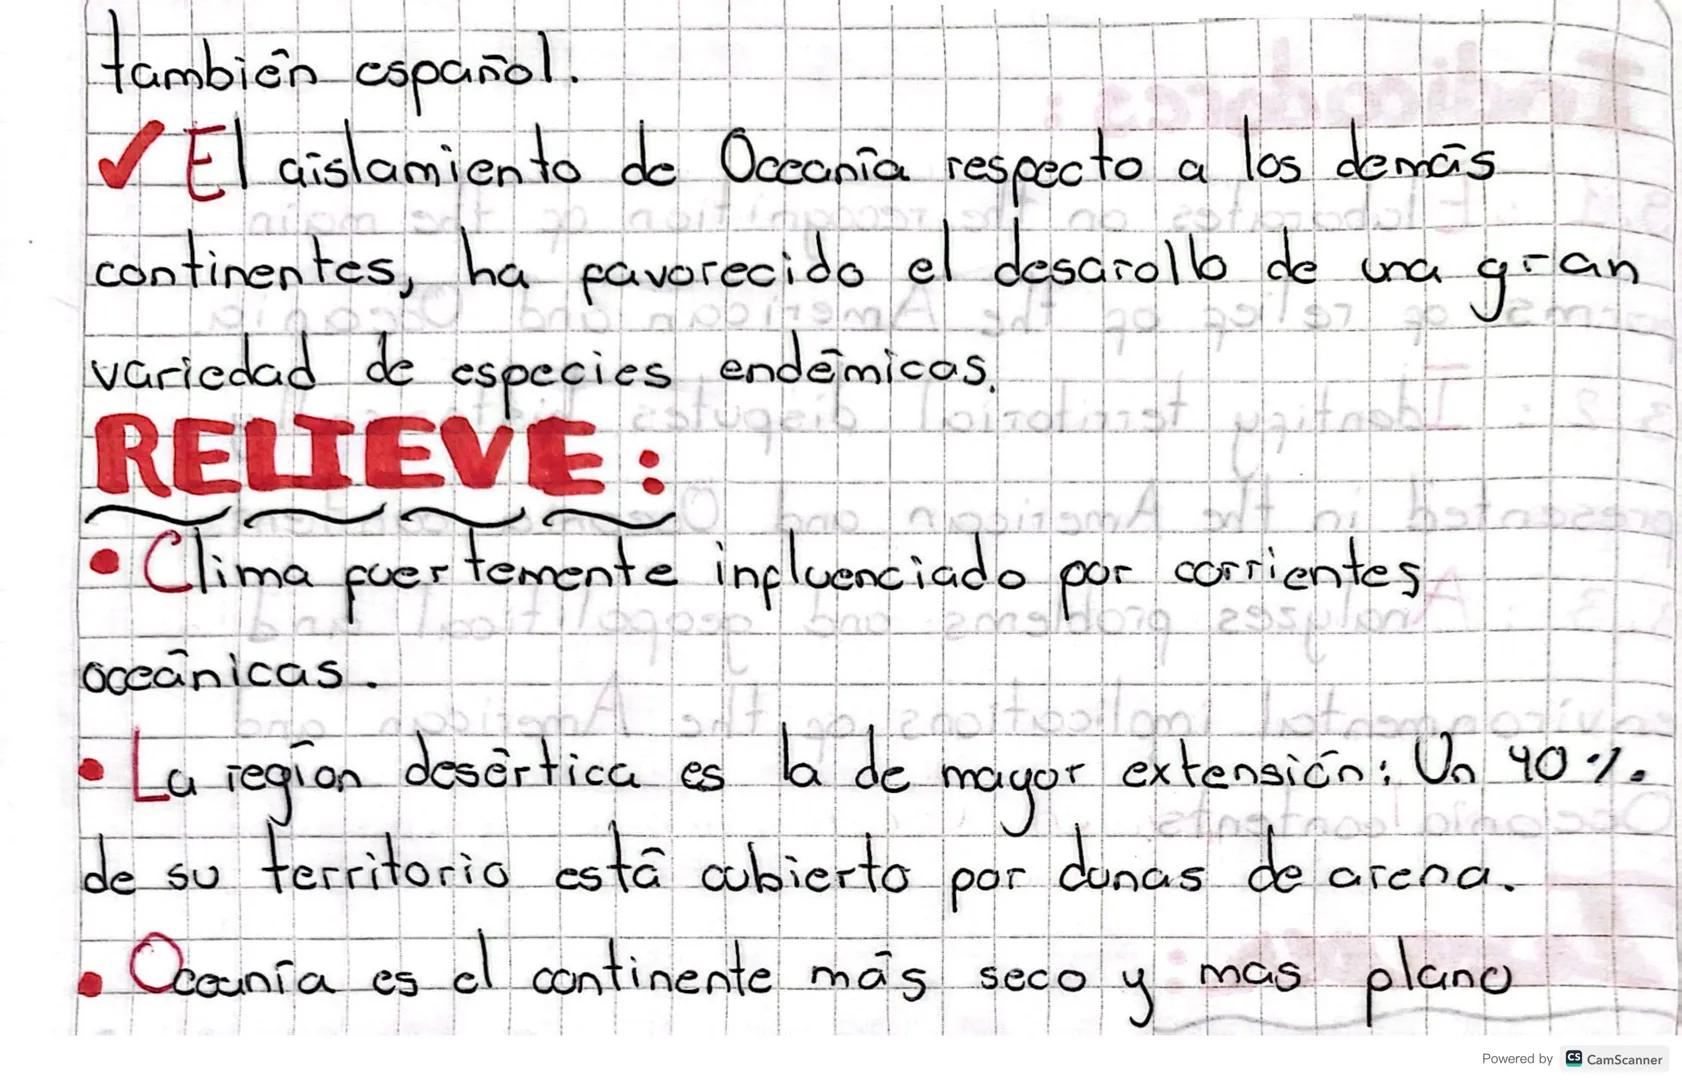 también español.
✓ El aislamiento de Oceanía respecto a los demás
continentes, ha favorecido el desarollo de una gran
variedad de especies endémicas.
RELIEVE:
• Clima fuertemente influenciado por corrientes
oceánicas.
• La región desértica es la de mayor extensión: Un 40%.
de su territorio está cubierto por dunas de arena.
• Oceanía es el continente más seco y mas plano
Powered by CS CamScanner